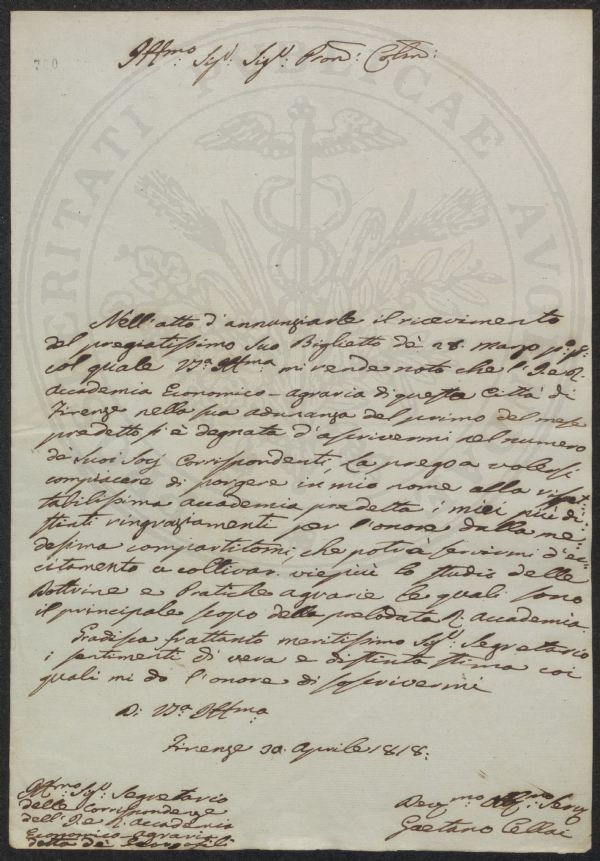 Ill.mo Sig.r Sig.r Pron. Colmo.
VERITATI PUBLICAE
Nell'atto d'annunziarle il ricevimento
del pregiatissimo Suo Biglietto de' 28. Marzo p.o p.o
col quale V.a Ill.ma mi rende noto che l'I. e R.
Accademia Economico-agraria di questa Città di
Firenze nella sua adunanza del primo del mese
predetto si è degnata d'ascrivermi nel numero
de' Suoi Socj Corrispondenti, La prego a volersi
compiacere di porgere in mio nome alla rispet=
tabilissima accademia predetta i miei più di=
stinti ringraziamenti per l'onore dalla me=
desima compartitomi, che potrà servirmi d'ec=
citamento a coltivar viepiù lo studio delle
Dottrine e Pratiche agrarie le quali sono
il principale scopo della prelodata R. accademia.
Gradisca frattanto meritissimo Sig.r Segretario
i sentimenti di vera e distinta stima coi
quali mi do l'onore di soscrivermi
Di V.a Ill.ma
Firenze aprile 1818.
Ill.mo Sig.r Segretario
delle Corrispondenze
dell'I. e R. Accademia
Economico-agraria
detta de' Georgofili
Dev.mo Serv.
Gaetano Cellai